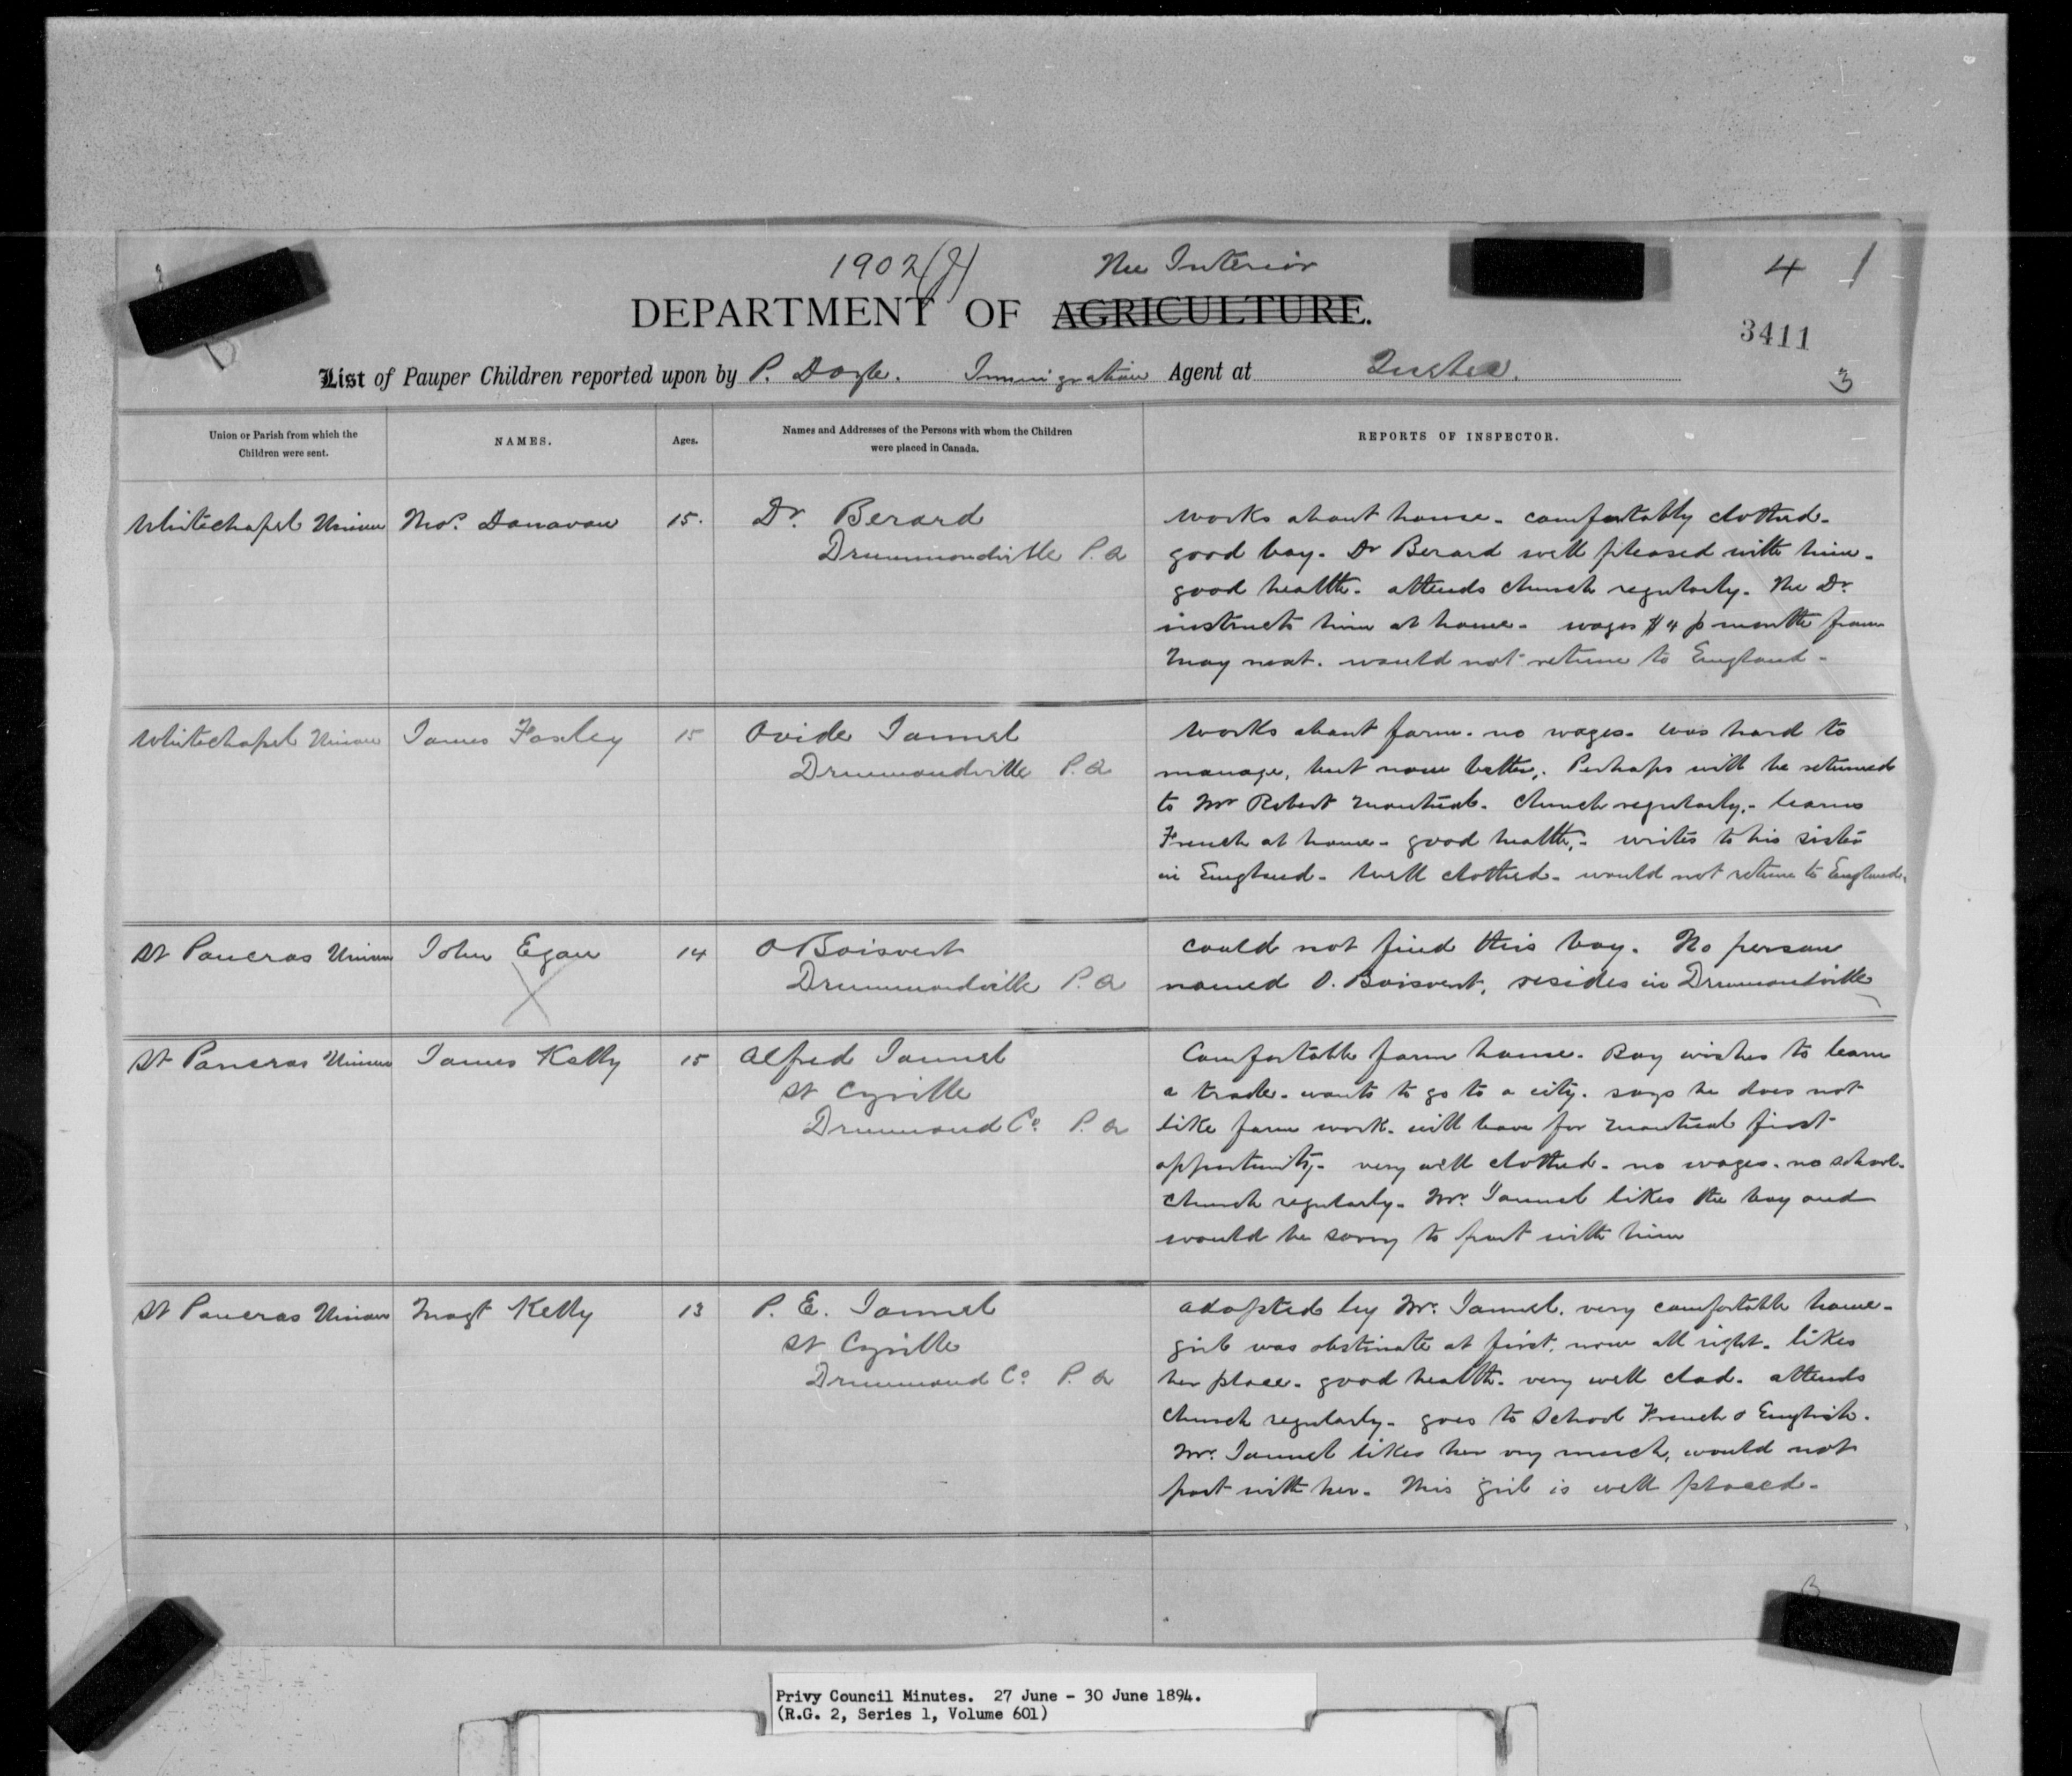 1902(J) The Interior 4 1
DEPARTMENT OF AGRICULTURE.
3411
List of Pauper Children reported upon by P. Doyle. Immigration Agent at Quebec.
3
Union or Parish from which the Children were sent.
NAMES.
Ages.
Names and Addresses of the Persons with whom the Children were placed in Canada.
REPORTS OF INSPECTOR.
Whitechapel Union Thos. Donavan 15. Dr. Berard
Drummondville P.Q
works about house - comfortably clothed -
good boy - Dr Berard well pleased with him -
good health - attends church regularly - The Dr.
instructs him at home - wages $4 p month from
May next. would not return to England -
Whitechapel Union James Foxley 15 Ovide Jannel
Drummondville P.Q
Works about farm - no wages - was hard to
manage, but now better. Perhaps will be returned
to Mr Robert Montreal - Church regularly - learns
French at home - good health - writes to his sister
in England - Well clothed - would not return to England.
St Pancras Union John Egan 14 O Boisvert
Drummondville P.Q
could not find this boy. No person
named O. Boisvert, resides in Drummondville
St Pancras Union James Kelly 15 Alfred Jannel
St Cyrille
Drummond Co P.Q
Comfortable farm house - Boy wishes to learn
a trade - wants to go to a city. says he does not
like farm work - will leave for Montreal first
opportunity - very well clothed - no wages - no school -
Church regularly - Mr. Jannel likes the boy and
would be sorry to part with him
St Pancras Union Magt Kelly 13 P. E. Jannel
St Cyrille
Drummond Co P.Q
adopted by Mr. Jannel. very comfortable home -
girl was obstinate at first. now all right - likes
her place - good health - very well clad - attends
Church regularly - goes to School French & English.
Mr. Jannel likes her very much, would not
part with her - This girl is well placed -
Privy Council Minutes. 27 June - 30 June 1894.
(R.G. 2, Series 1, Volume 601)